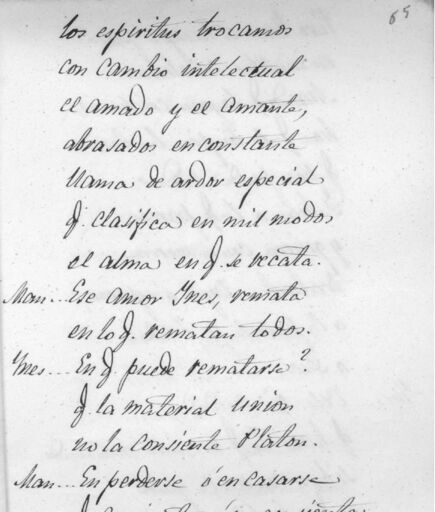 65
los espiritus trocamos
con cambio intelectual
el amado y el amante,
abrasados en constante
llama de ardor especial
q. clasifica en mil modos
el alma en q. se recata.
Man... Ese amor Ynes, remata
en lo q. rematan todos.
Ynes... En q. puede rematarse?
q. la material union
no la consiente Platon.
Man... En perderse ó en casarse